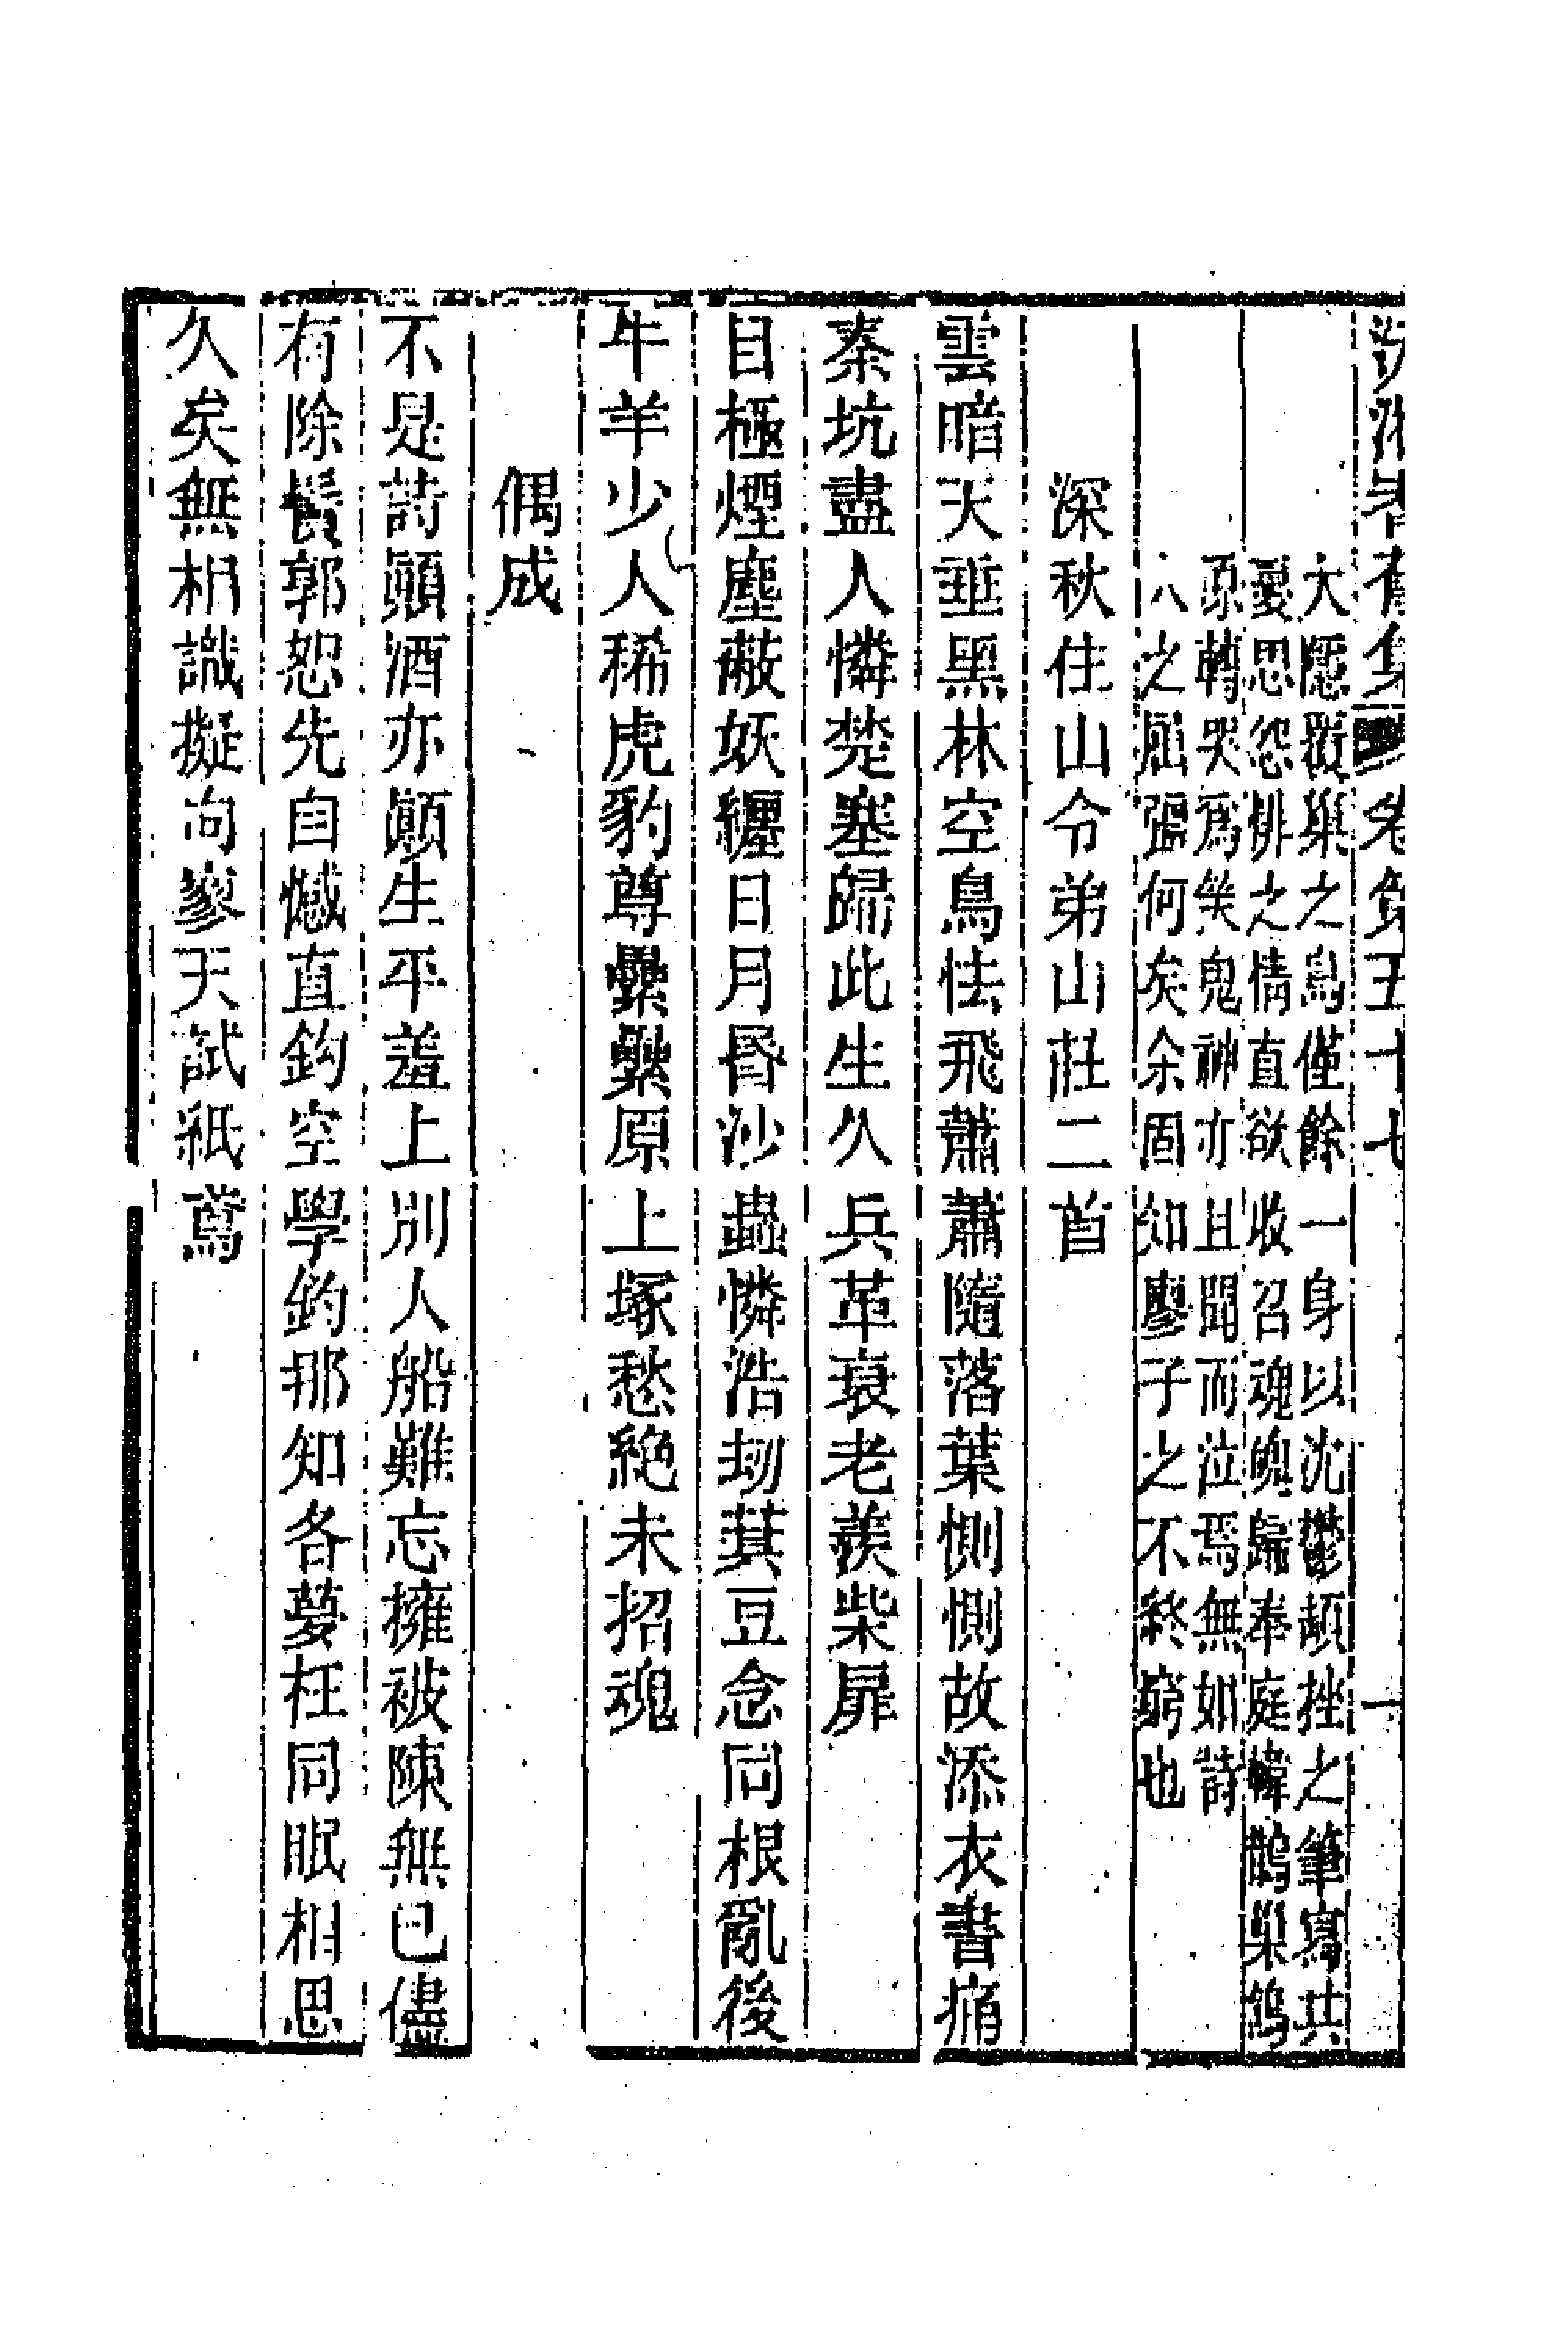 沅湘耆舊集 卷第五十七 一
大隱覆巢之鳥僅餘一身以沈鬱頓挫之筆寫其
憂思怨悱之情直欲收召魂魄歸奉庭幃鵲巢鴒
原轉哭爲笑鬼神亦且聞而泣焉無如詩
人之屈彊何矣余固知廖子之不終窮也
深秋住山令弟山莊二首
雲暗天垂黑林空鳥怯飛蕭蕭隨落葉惻惻故添衣書痛
秦坑盡人憐楚塞歸此生久兵革衰老羨柴扉
目極煙塵蔽妖纏日月昬沙蟲憐浩刧萁豆念同根亂後
牛羊少人稀虎豹尊纍纍原上塚愁絕未招魂
偶成
不是詩顚酒亦顚生平羞上別人船難忘擁被陳無已儘
有除鬚郭恕先自憾直鈎空學釣那知各夢枉同眠相思
久矣無相識擬向寥天試紙鳶